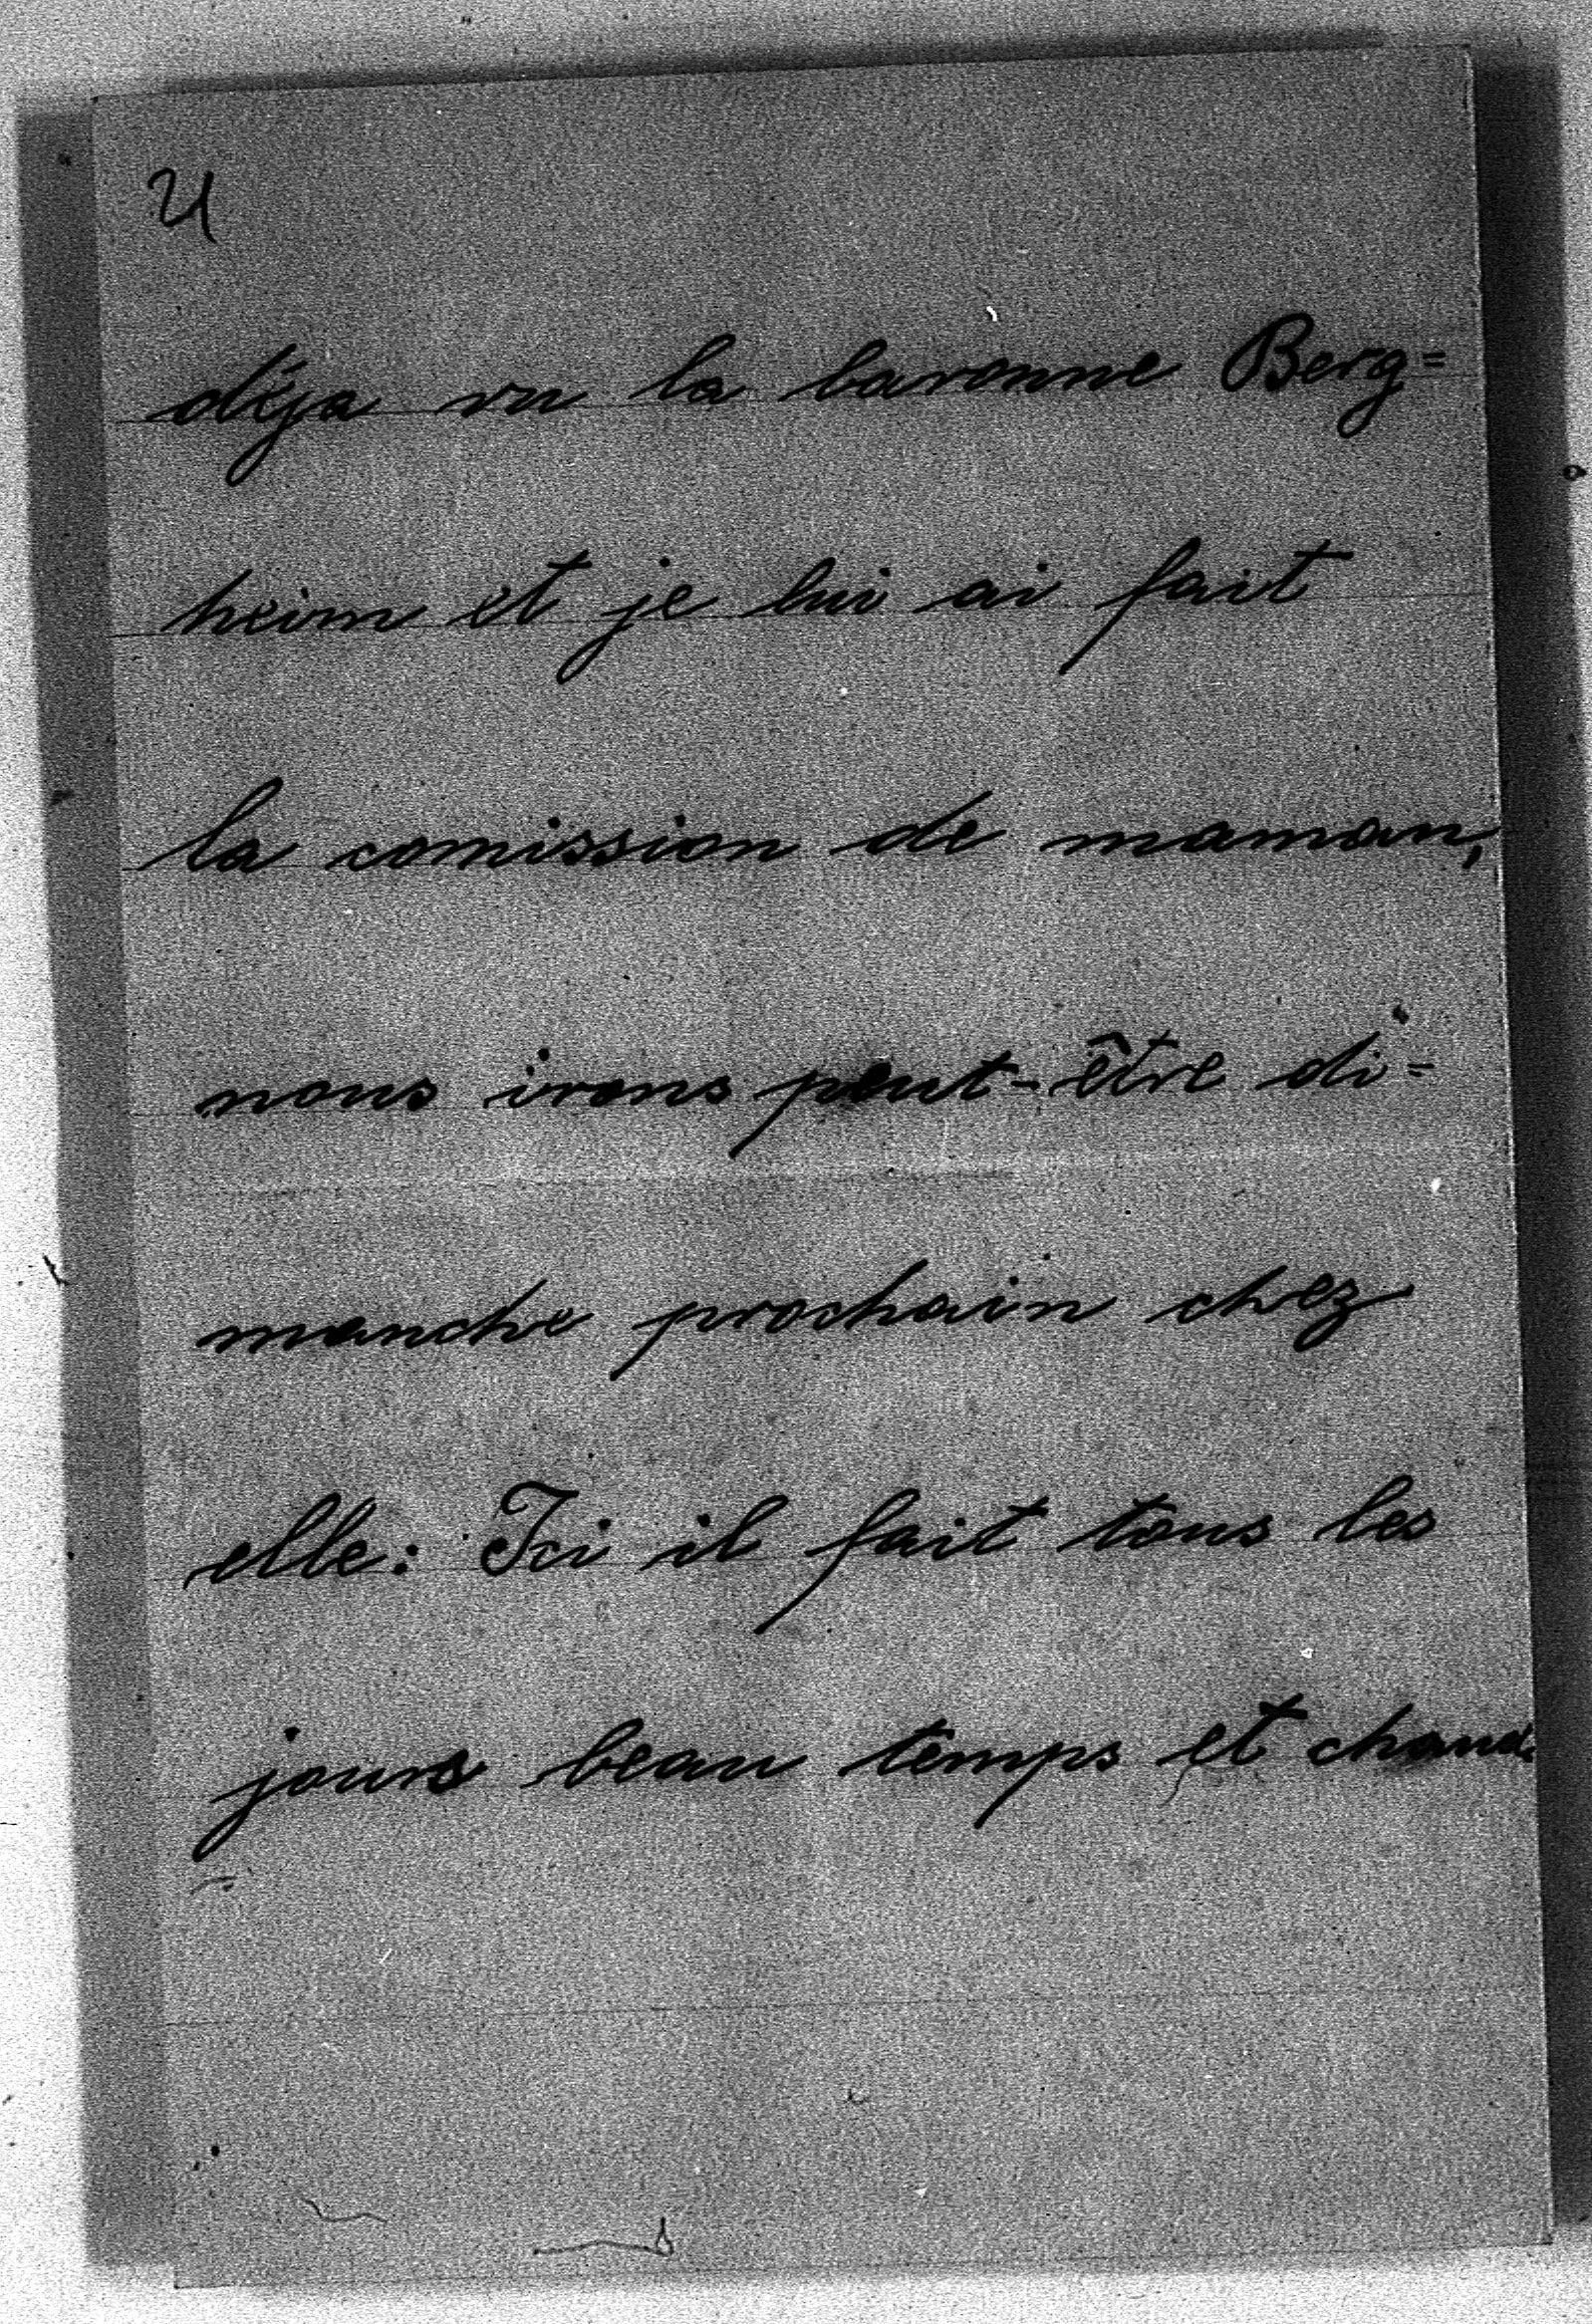 U
déja vu la baronne Berg=
heim et je lui ai fait
la comission de maman,
nous irons peut-être di=
manche prochain chez
elle: Ici il fait tous les
jours beau temps et chaud.